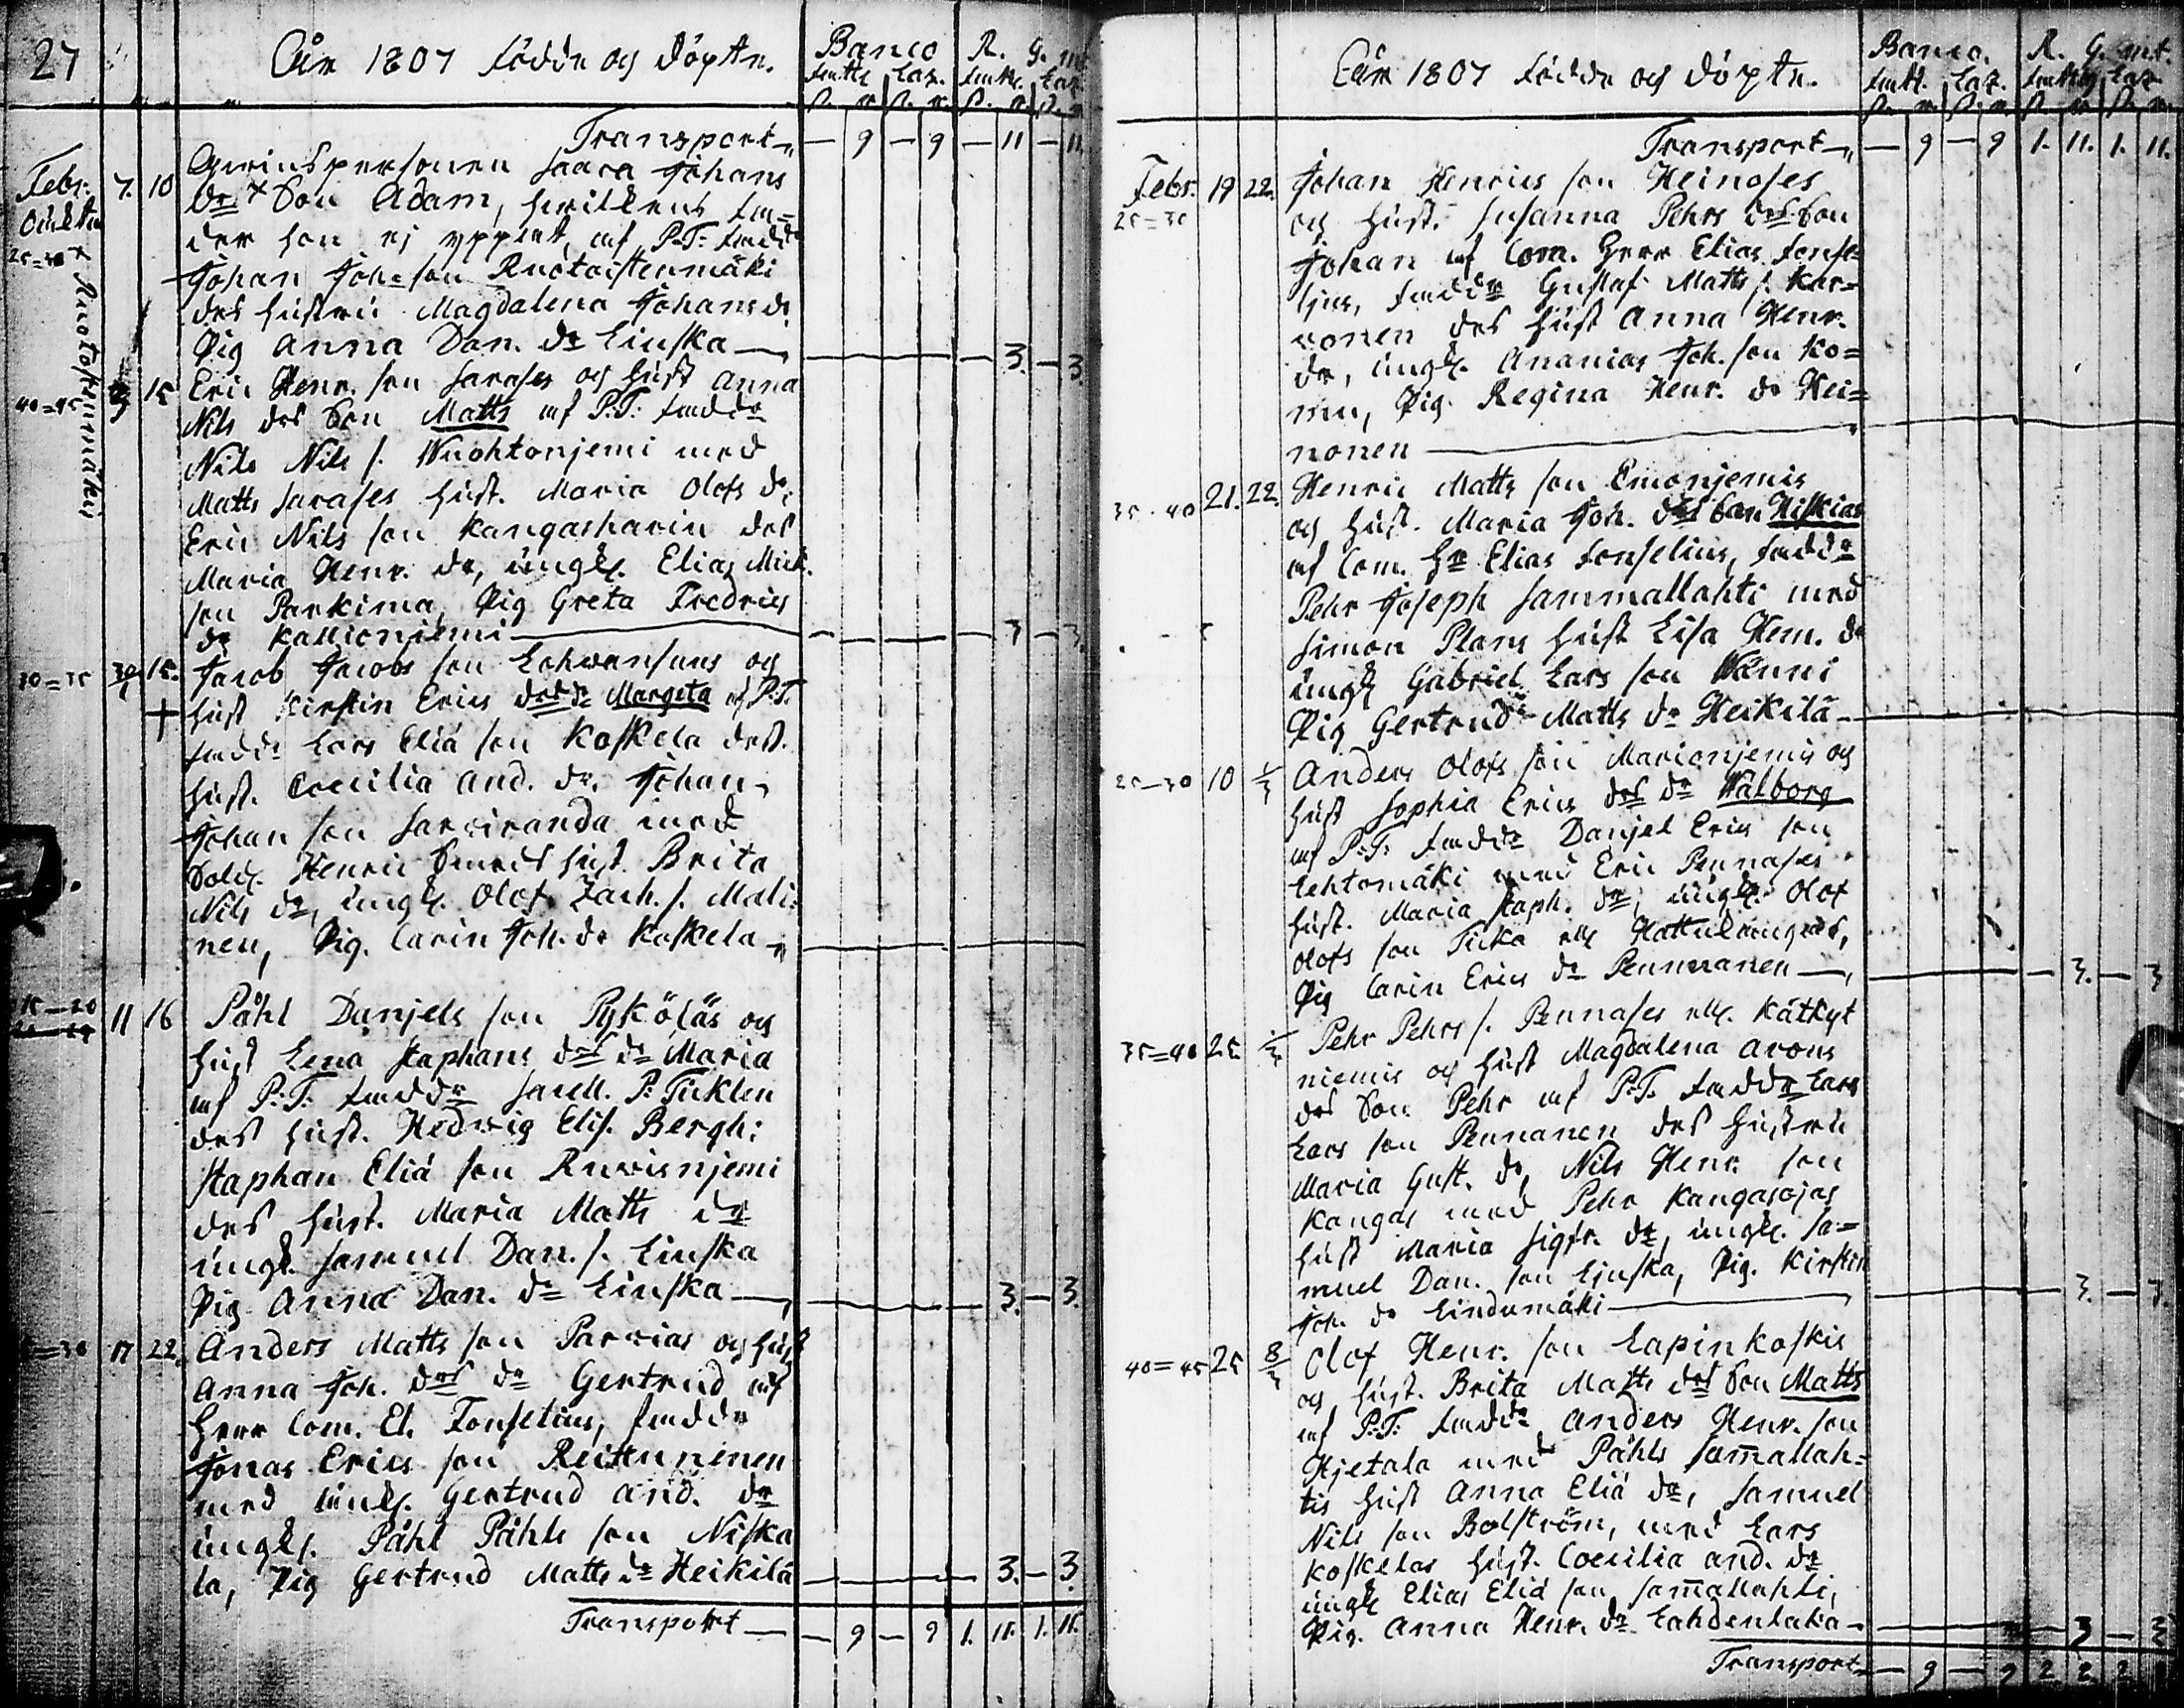 27
Åhr 1807 födde og döpte.
Banco R. G. mt
Transport — 9 — 9 — 11 — 11.
Febr. 7. 10 Qwinspersonen Saara Johans
dr + Son Adam, hwilkens fa=
der hon ej yppat, af P.T. fadd
25=30
+ Ruotoistenmäkii
Johan Joh=son Ruotoistenmäki
des hustru Magdalena Johans dr
Pig Anna Dan. dr Linska — 3. — 3.
40=45 15 Eric Henr. son Sarases og Hust Anna
Nils drs Son Matts af P.T. fadde
Nils Nils s. Wuohtonjemi med
Matts Sarases Hust. Maria Olofs dr,
Eric Nils son Kangasharin des
Maria Henr. dr, ungk. Elias Mick.
son Parkima, Pig Greta Fredrics
dr Kallionjemi — 3 — 3.
30=35 30/1 15. Jacob Jacobs son Lohwansuus og
+ Hust Kirstin Erics drs dr Margeta af P.T.
fadde Lars Eliä son Koskela des
Hust. Coecilia And. dr. Johan
Johan son Sarviranda med
Sold. Henric Smeds Hust. Brita
Nils dr, ungk. Olof Zach. s. Mali=
nen, Pig. Carin Joh. dr Koskela
15—20 11 16 Påhl Danjels son Pyköläs og
Hust Lena Staphans drs dr Maria
af P.T. fadde Sacell. P. Ticklen
des Hust. Hedwig Elis. Bergh:
Staphan Eliä son Ruwisnjemi
des Hust. Maria Matts dr
ungk. Samuel Dan. s. Linska
Pig Anna Dan. dr Linska — 3. — 3.
=30 17 22. Anders Matts son Parvias og Hust
Anna Joh. drs dr Gertrud af
Herr Com. El. Fonselius, fadde
Jonas Erics son Reittuninen
med ungk. Gertrud And. dr
ungk. Påhl Påhls son Niska
la, Pig Gertrud Matts dr Heikilä — 3. — 3.
Transport — 9 — 9 1. 11. 1. 11.
Åhr 1807 födde og döpte.
Banco. R. G. mt.
Transport — 9 — 9 1. 11. 1. 11.
Febr. 19 22. Johan Henrics son Heinoses
25=30 og Hust. Susanna Pehrs drs Son
Johan af Com. Herr Elias Fonse=
lius, fadde Gustaf Matts s. Kar=
vonen des Hust Anna Henr.
dr, ungk. Ananias Joh. son Ko=
mu, Pig. Regina Henr. dr Hei=
nonen
35-40 21. 22. Henric Matts son Emonjemis
og Hust. Maria Joh. drs Son Hiskias
af Com. Hr Elias Fonselius, fadde
Pehr Joseph Sammallahti med
Simon Plans Hust Lisa Hem. dr
ungk Gabriel Lars son Wänni
Pig Gertrud Matts dr Heikilä
25—30 10 1/3 Anders Olofs son Marionjemis og
Hust Sophia Erics drs dr Walborg
af P.T. fadde Danjel Erics son
Lehtomäki med Eric Pennases
Hust. Maria Staph. dr, ungk. Olof
Olofs son Ticka
Pig Carin Erics dr Pennanen — 3. — 3
35=40 25. 1/3 Pehr Pehrs s. Pennases ell. Kätkyt
niemis og Hust Magdalena Arons
drs Son Pehr af P.T. fadde Lars
Lars son Pennanen des Hustru
Maria Gust. dr, Nils Henr. son
Kangas med Pehr Kangasojas
Hust Maria Sigfr. dr, ungk. Sa=
muel Dan. son Linska, Pig. Kirstin
Joh. dr Lindumäki — 3. — 3.
40=45 25 8/3 Olof Henr. son Lapinkoskis
og Hust. Brita Matts drs Son Matts
af P.T. fadde Anders Henr. son
Hjetala med Påhls Sam̅allah=
tis Hust Anna Eliä dr, Samuel
Nils son Bolström, med Lars
Koskelas Hust. Coecilia And. dr
ungk Elias Eliä son Sam̅allahti,
Pig. Anna Henr. dr Lahdenlaka — 3 — 3
Transport — 9 — 9 2 2 2